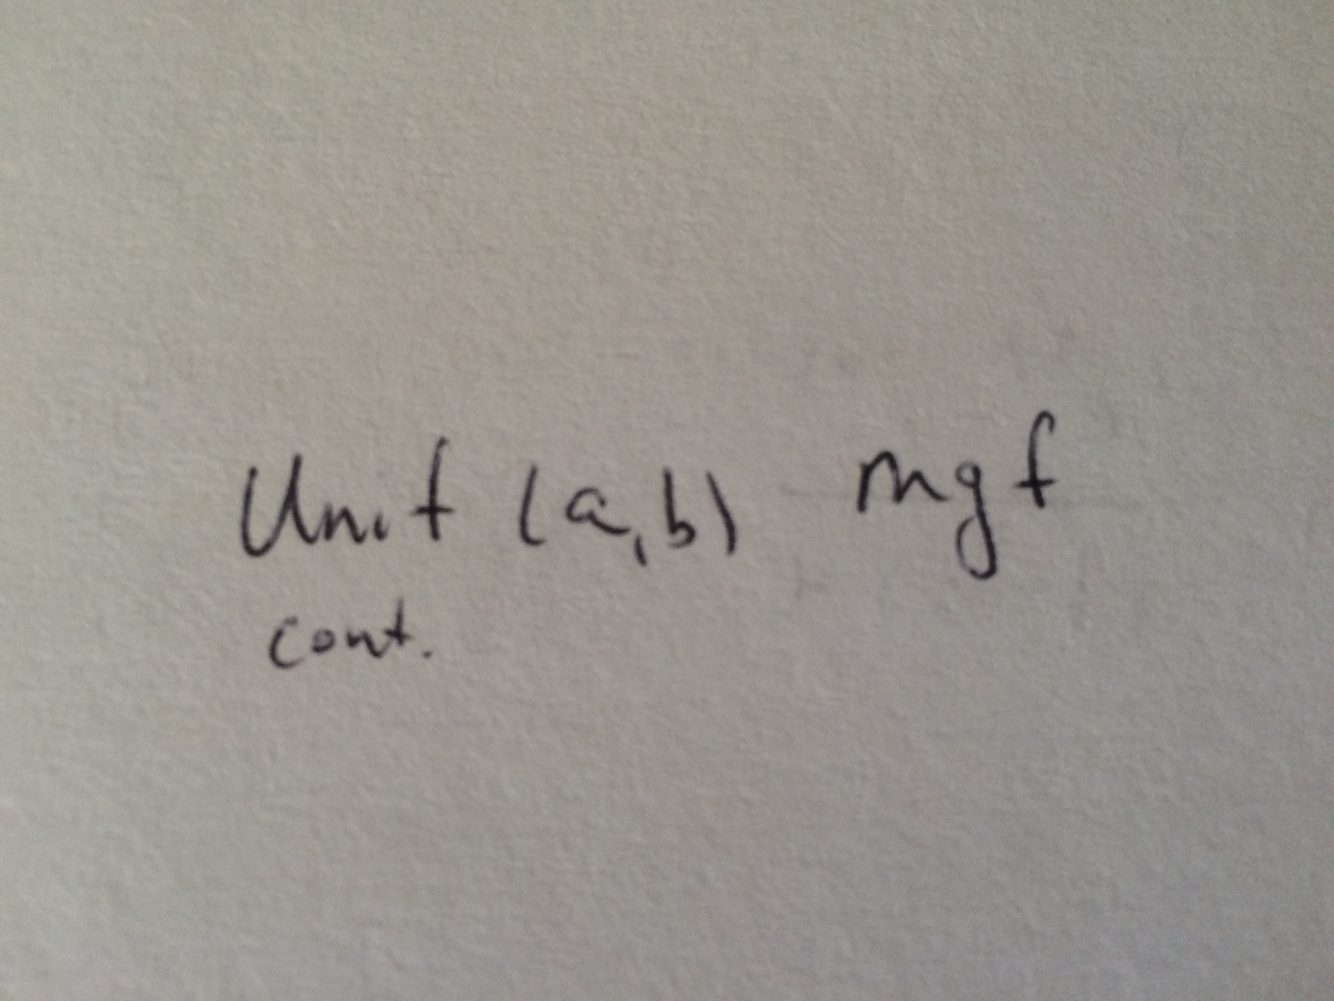 Unif (a,b) mgf
cont.